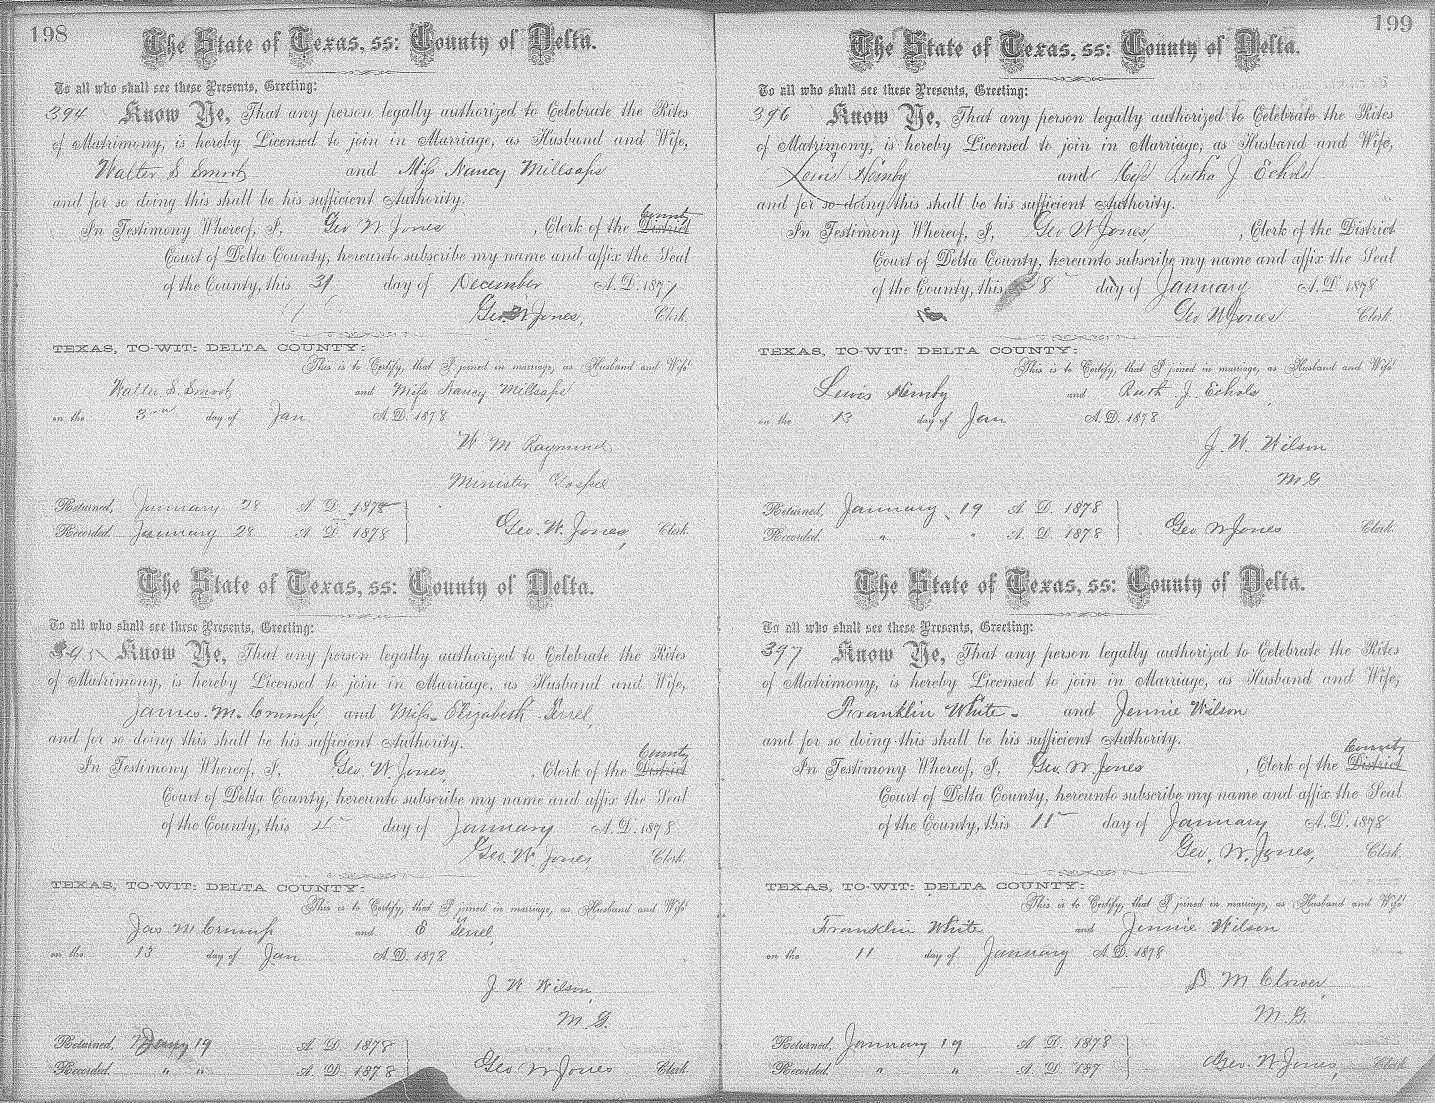 198
The State of Texas, ss: County of Delta.
To all who shall see these Presents, Greeting:
394 Know Ye, That any person legally authorized to Celebrate the Rites
of Matrimony, is hereby Licensed to join in Marriage, as Husband and Wife,
Walter S Smoot and Miss Nancy Millsaps
and for so doing this shall be his sufficient Authority.
County
In Testimony Whereof, I, Geo W Jones, Clerk of the District
Court of Delta County, hereunto subscribe my name and affix the Seal
of the County, this 31 day of December A.D. 1877
Geo. W. Jones, Clerk.
TEXAS, TO-WIT: DELTA COUNTY:
This is to Certify, that I joined in marriage, as Husband and Wife
Walter S. Smoot and Miss Nancy Millsaps
on the 3rd day of Jan A.D. 1878
W M Raymond
Minister Gospel
Returned, January 28 A.D. 1878
Recorded. January 28 A.D. 1878 Geo. W. Jones, Clerk
The State of Texas, ss: County of Delta.
To all who shall see these Presents, Greeting:
395 Know Ye, That any person legally authorized to Celebrate the Rites
of Matrimony, is hereby Licensed to join in Marriage, as Husband and Wife,
James. M. Crump, and Miss Elizabeth
and for so doing this shall be his sufficient Authority.
County
In Testimony Whereof, I, Geo. W. Jones, Clerk of the District
Court of Delta County, hereunto subscribe my name and affix the Seal
of the County, this 4 day of January A.D. 1878
Geo. W. Jones, Clerk.
TEXAS, TO-WIT: DELTA COUNTY:
This is to Certify, that I joined in marriage, as Husband and Wife
Jas M Crump and E
on the 13 day of Jan A.D. 1878
J W Wilson,
M. G.
Returned, Jany 19 A.D. 1878
Recorded. " " A.D. 1878 Geo W Jones Clerk
199
The State of Texas, ss: County of Delta.
To all who shall see these Presents, Greeting:
396 Know Ye, That any person legally authorized to Celebrate the Rites
of Matrimony, is hereby Licensed to join in Marriage, as Husband and Wife,
Lewis Hemby and Miss Rutha J Echols
and for so doing this shall be his sufficient Authority.
In Testimony Whereof, I, Geo W Jones, Clerk of the District
Court of Delta County, hereunto subscribe my name and affix the Seal
of the County, this 8 day of January A.D. 1878
Geo W Jones Clerk.
TEXAS, TO-WIT: DELTA COUNTY:
This is to Certify, that I joined in marriage, as Husband and Wife
Lewis Hemby and Ruth J. Echols,
on the 13 day of Jan A.D. 1878
J. W. Wilson
M G
Returned, January 19 A.D. 1878
Recorded. " " A.D. 1878 Geo W Jones Clerk.
The State of Texas, ss: County of Delta.
To all who shall see these Presents, Greeting:
397 Know Ye, That any person legally authorized to Celebrate the Rites
of Matrimony, is hereby Licensed to join in Marriage, as Husband and Wife,
Franklin White and Jennie Wilson
and for so doing this shall be his sufficient Authority.
County
In Testimony Whereof, I, Geo. W Jones, Clerk of the District
Court of Delta County, hereunto subscribe my name and affix the Seal
of the County, this 11 day of January A.D. 1878
Geo. W. Jones, Clerk.
TEXAS, TO-WIT: DELTA COUNTY:
This is to Certify, that I joined in marriage, as Husband and Wife
Franklin White and Jennie Wilson
on the 11 day of January A.D. 1878
D M Clower,
M. G.
Returned, January 19 A.D. 1878
Recorded. " " A.D. 187 Geo. W. Jones, Clerk